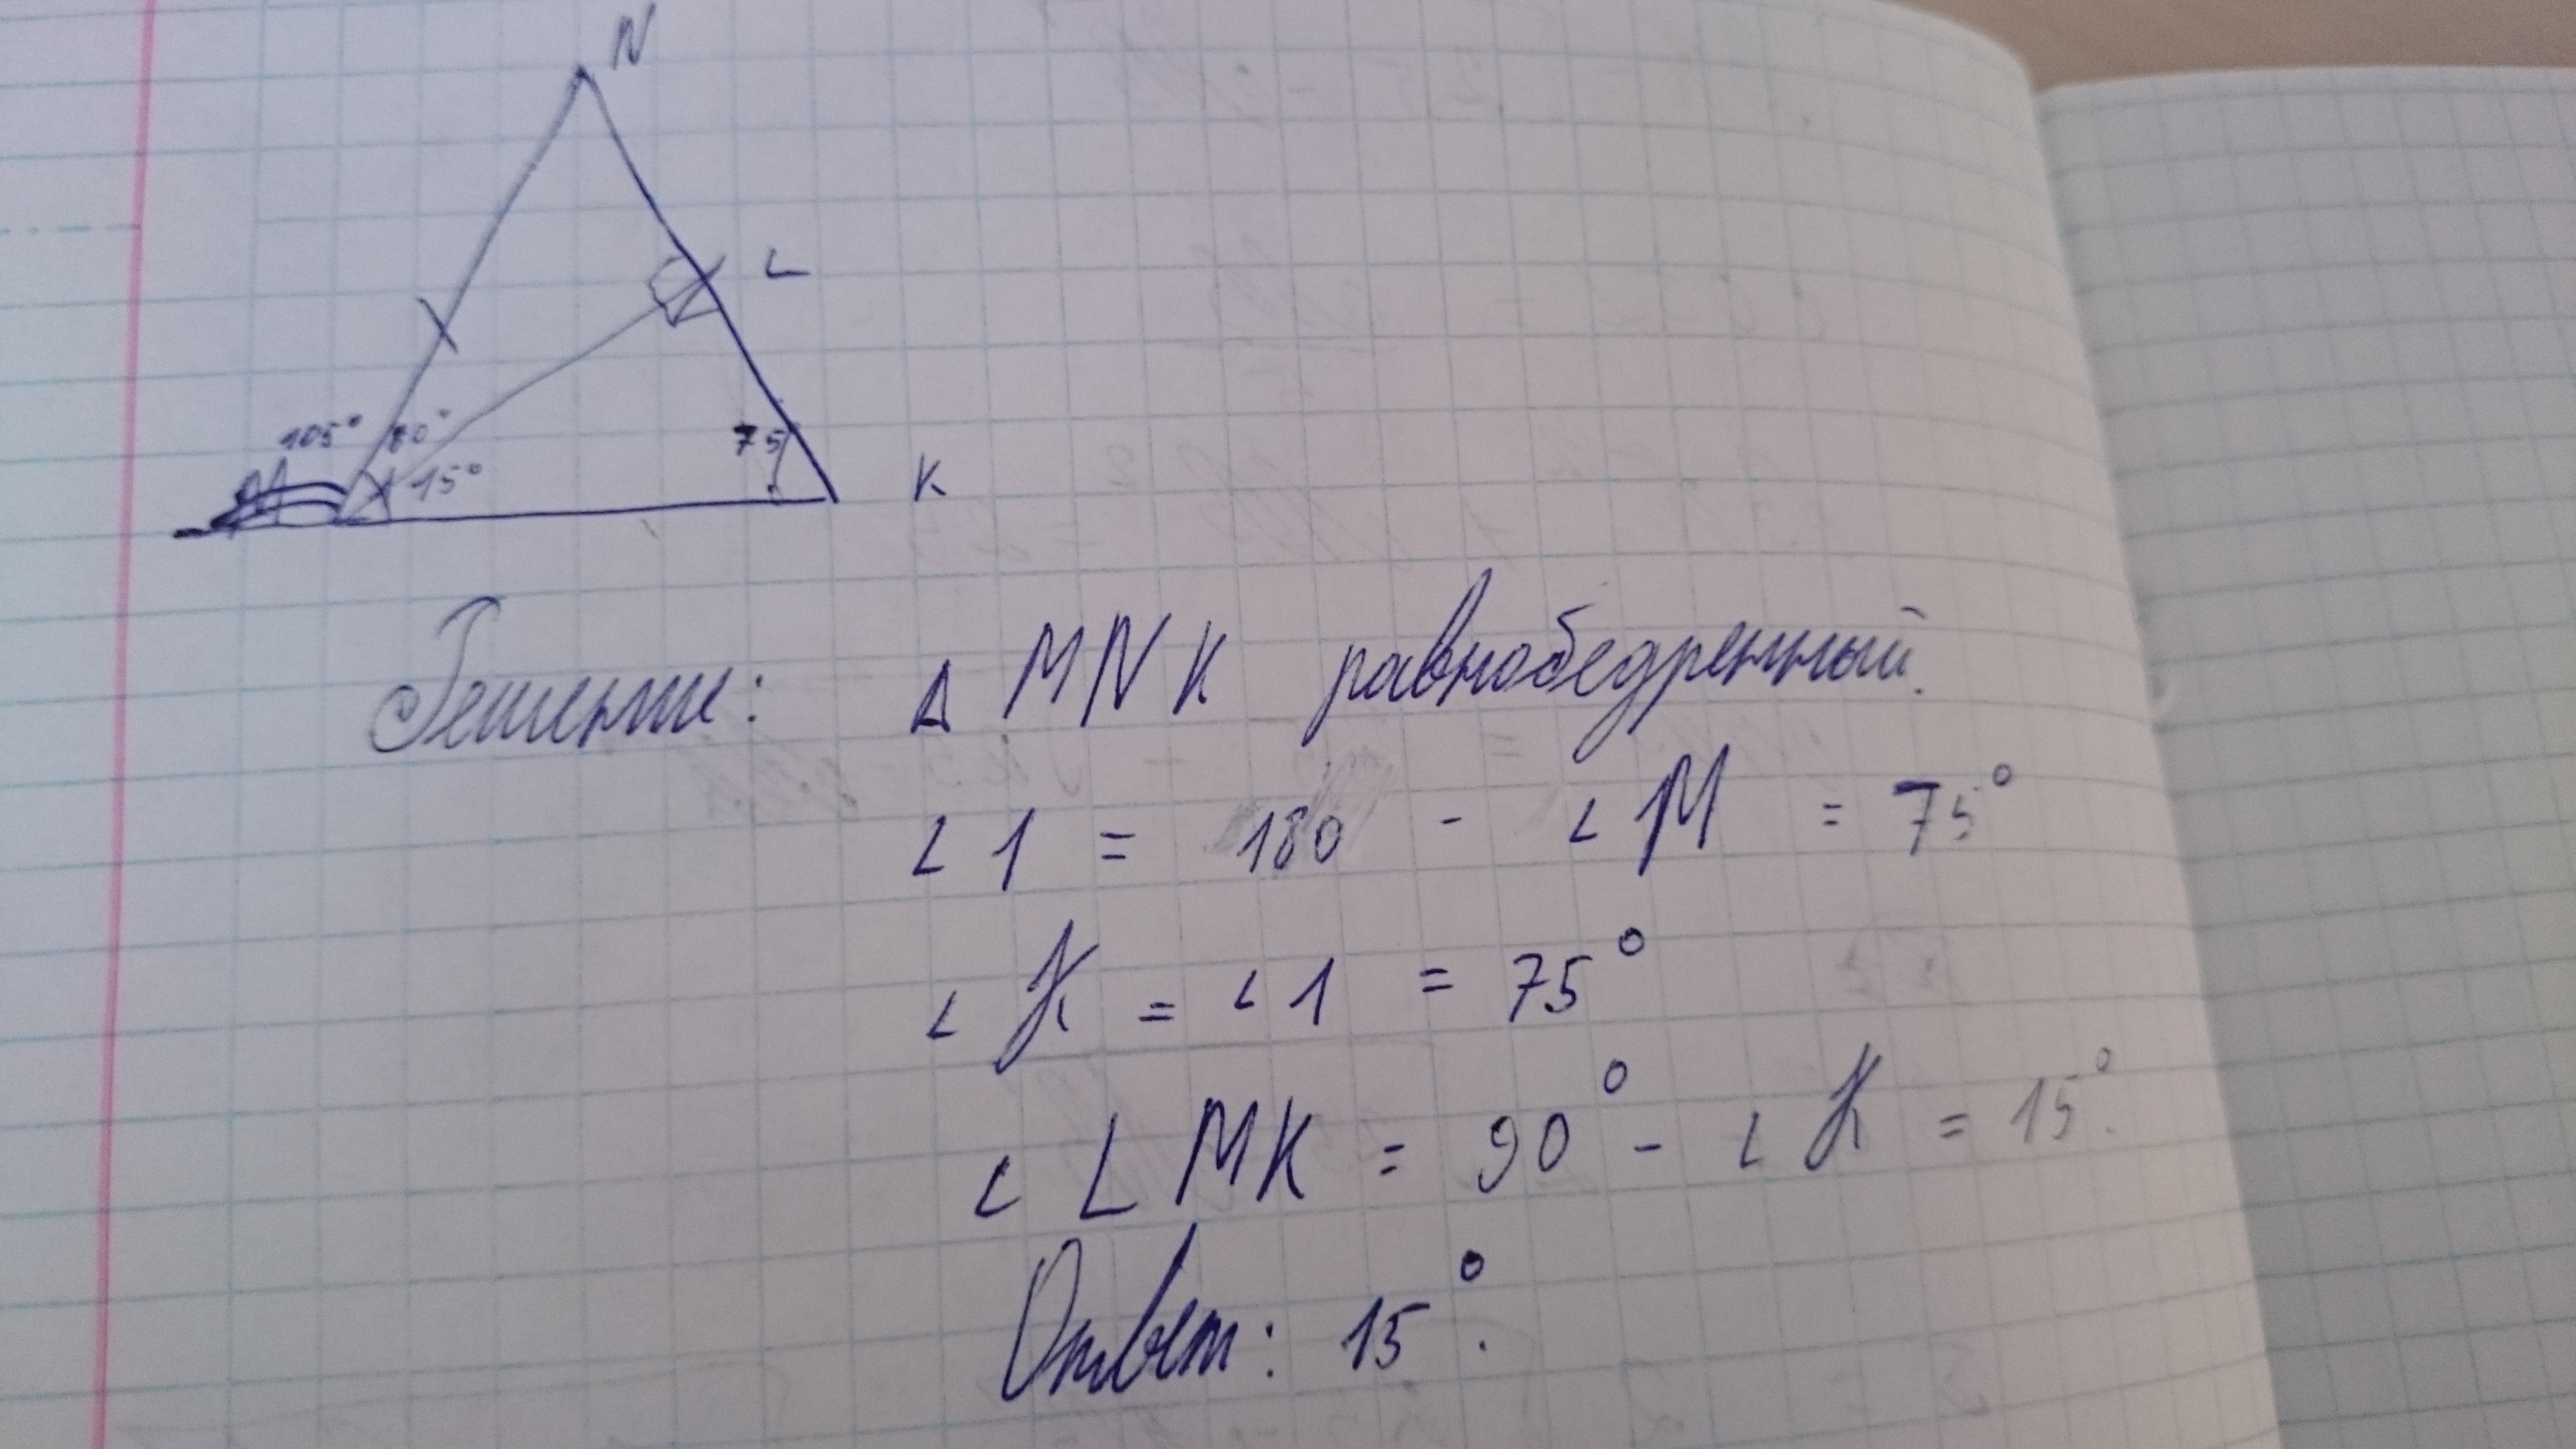 N
L
105° 60°
75
15°
K
M
Решение: Δ MNK равнобедренный.
∠1 = 180 - ∠M = 75°
∠K = ∠1 = 75°
∠LMK = 90° - ∠K = 15°.
Ответ: 15°.